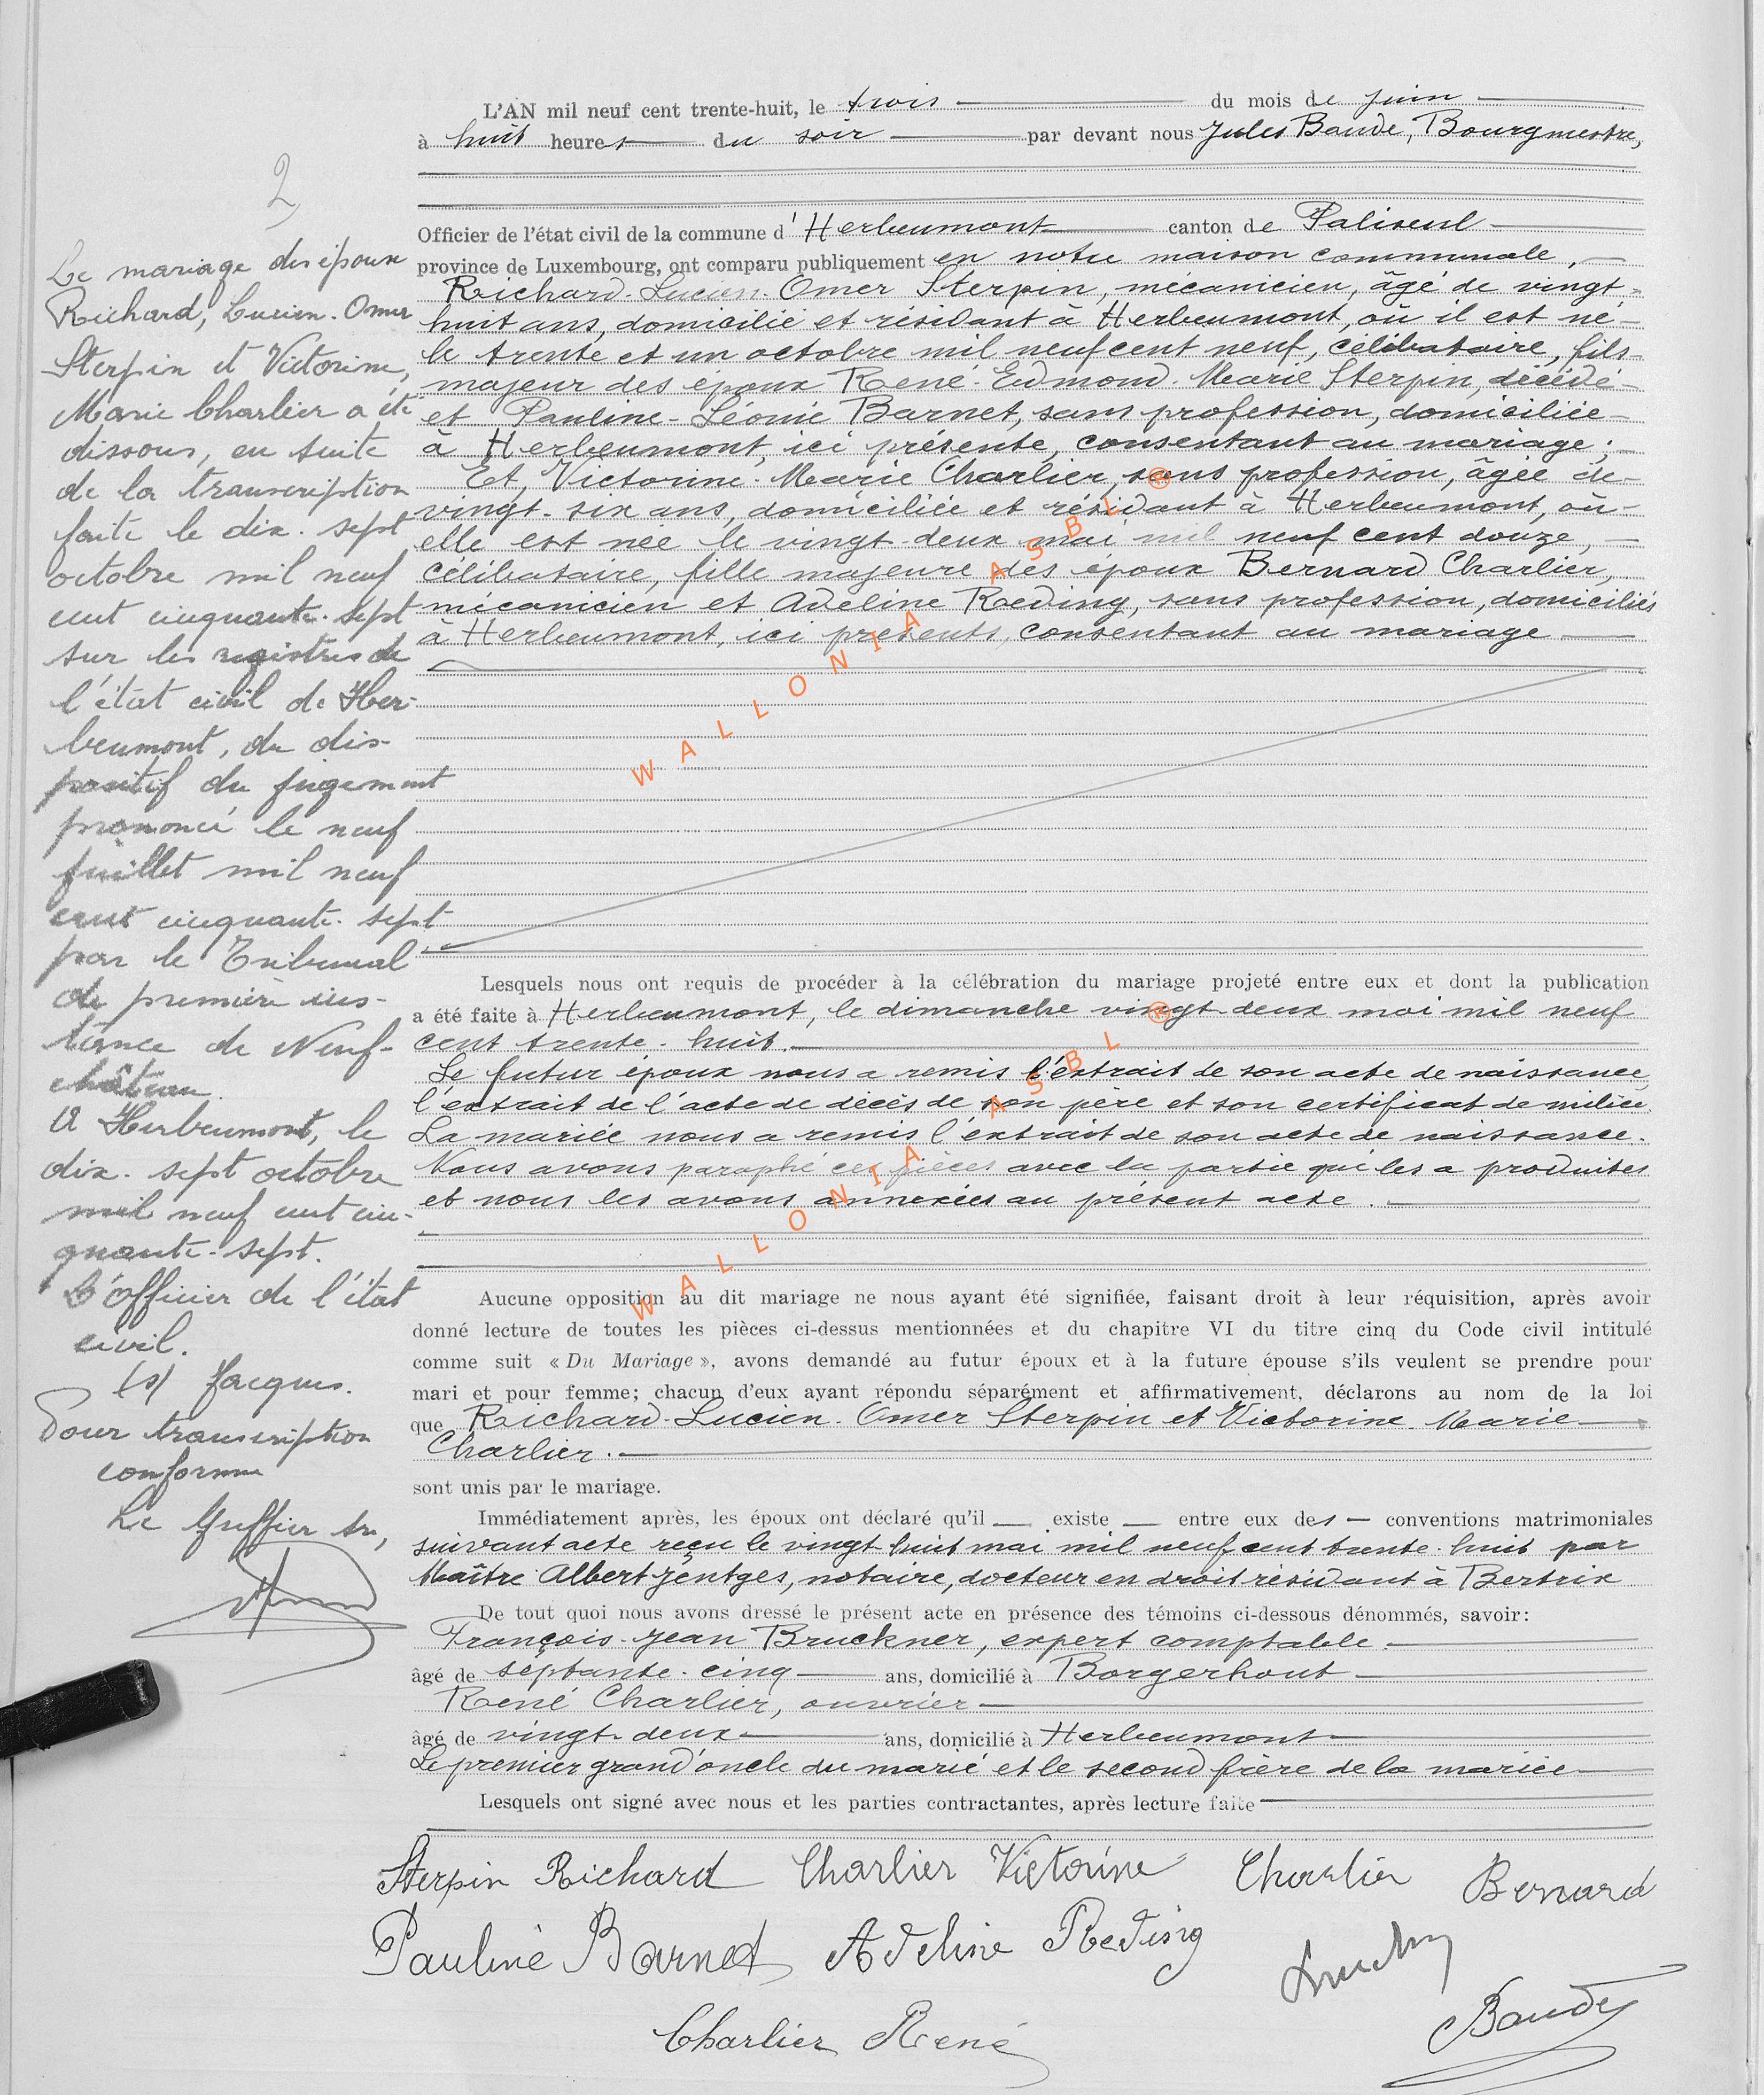 L'AN mil neuf cent trente-huit, le trois du mois de juin
à huit heures du soir par devant nous Jules Baude, Bourgmestre,
Officier de l'état civil de la commune d'Herbeumont canton de Paliseul
province de Luxembourg, ont comparu publiquement en notre maison communale,
Richard-Lucien-Omer Sterpin, mécanicien, âgé de vingt-
huit ans, domicilié et résidant à Herbeumont, où il est né
le trente et un octobre mil neuf cent neuf, célibataire, fils
majeur des époux René-Edmond-Marie Sterpin, décédé
et Pauline-Léonie Barnet, sans profession, domiciliée
à Herbeumont, ici présente, consentant au mariage;
Et, Victorine-Marie Charlier, sans profession, âgée de
vingt-six ans, domiciliée et résidant à Herbeumont, où
elle est née le vingt-deux mai mil neuf cent douze,
célibataire, fille majeure des époux Bernard Charlier,
mécanicien et Adeline Reding, sans profession, domiciliés
à Herbeumont, ici présents, consentant au mariage
Lesquels nous ont requis de procéder à la célébration du mariage projeté entre eux et dont la publication
a été faite à Herbeumont, le dimanche vingt-deux mai mil neuf
cent trente-huit.
Le futur époux nous a remis l'extrait de son acte de naissance,
l'extrait de l'acte de décès de son père et son certificat de milice.
La mariée nous a remis l'extrait de son acte de naissance.
Nous avons paraphé ces pièces avec la partie qui les a produites
et nous les avons annexées au présent acte.
Aucune opposition au dit mariage ne nous ayant été signifiée, faisant droit à leur réquisition, après avoir
donné lecture de toutes les pièces ci-dessus mentionnées et du chapitre VI du titre cinq du Code civil intitulé
comme suit « Du Mariage », avons demandé au futur époux et à la future épouse s'ils veulent se prendre pour
mari et pour femme; chacun d'eux ayant répondu séparément et affirmativement, déclarons au nom de la loi
que Richard-Lucien-Omer Sterpin et Victorine-Marie
Charlier.
sont unis par le mariage.
Immédiatement après, les époux ont déclaré qu'il — existe — entre eux des — conventions matrimoniales
suivant acte reçu le vingt-huit mai mil neuf cent trente-huit par
Maître Albert Jentges, notaire, docteur en droit résidant à Bertrix
De tout quoi nous avons dressé le présent acte en présence des témoins ci-dessous dénommés, savoir:
François-Jean Bruckner, expert comptable
âgé de septante-cinq ans, domicilié à Borgerhout
René Charlier, ouvrier
âgé de vingt-deux ans, domicilié à Herbeumont
Le premier grand'oncle du marié et le second frère de la mariée
Lesquels ont signé avec nous et les parties contractantes, après lecture faite
Sterpin Richard Charlier Victorine Charlier Bernard
Pauline Barnet Adeline Reding
Baude
Charlier René
2
Le mariage des époux
Richard, Lucien-Omer
Sterpin et Victorine,
Marie Charlier a été
dissous, en suite
de la transcription
faite le dix-sept
octobre mil neuf
cent cinquante-sept
sur les registres de
l'état civil de Her-
beumont, du dis-
positif du jugement
prononcé le neuf
juillet mil neuf
cent cinquante-sept
par le Tribunal
de première ins-
tance de Neuf-
château.
A Herbeumont, le
dix-sept octobre
mil neuf cent cin-
quante-sept.
L'officier de l'état
civil.
(s) Jacques.
Pour transcription
conforme
Le Greffier
WALLONIA ASBL ®
WALLONIA ASBL ®